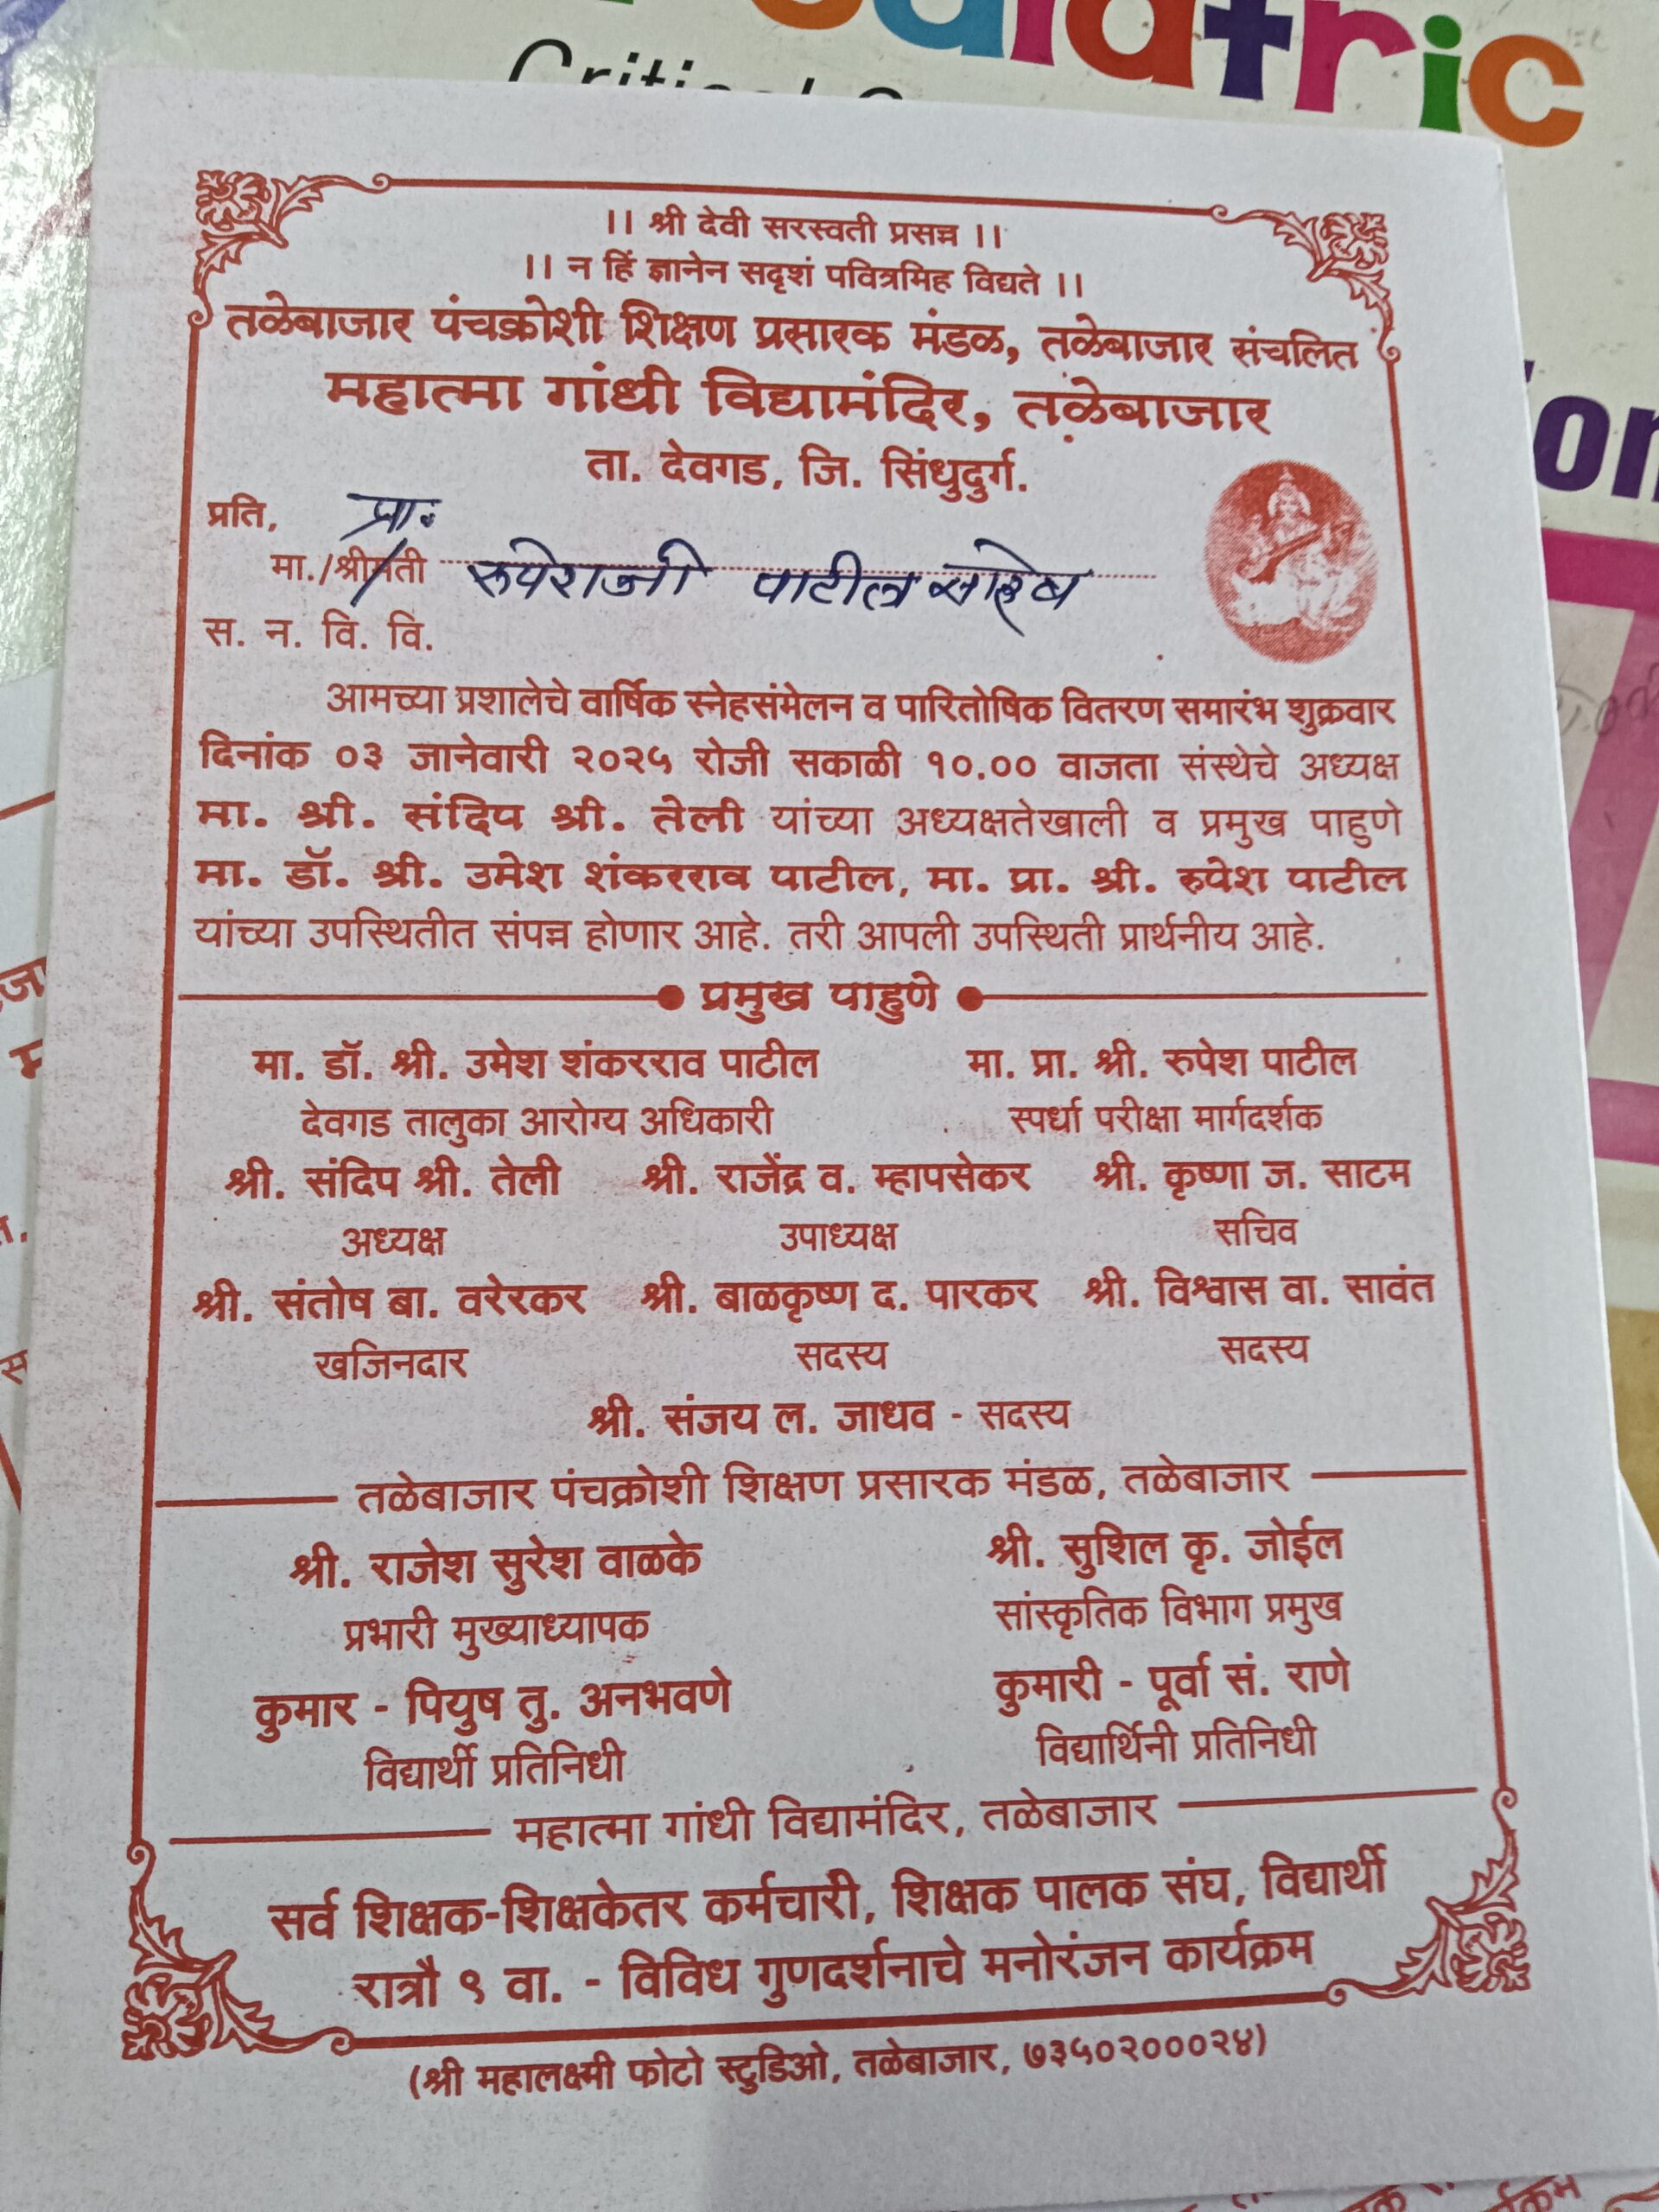 Pediatric
Critical
।। श्री देवी सरस्वती प्रसन्न ।।
।। न हिं ज्ञानेन सदृशं पवित्रमिह विद्यते ।।
तळेबाजार पंचक्रोशी शिक्षण प्रसारक मंडळ, तळेबाजार संचलित
महात्मा गांधी विद्यामंदिर, तळेबाजार
ता. देवगड, जि. सिंधुदुर्ग.
प्रति, प्रा.
मा./श्रीमती रुपेशजी पाटील साहेब
स. न. वि. वि.
आमच्या प्रशालेचे वार्षिक स्नेहसंमेलन व पारितोषिक वितरण समारंभ शुक्रवार
दिनांक ०३ जानेवारी २०२५ रोजी सकाळी १०.०० वाजता संस्थेचे अध्यक्ष
मा. श्री. संदिप श्री. तेली यांच्या अध्यक्षतेखाली व प्रमुख पाहुणे
मा. डॉ. श्री. उमेश शंकरराव पाटील, मा. प्रा. श्री. रुपेश पाटील
यांच्या उपस्थितीत संपन्न होणार आहे. तरी आपली उपस्थिती प्रार्थनीय आहे.
प्रमुख पाहुणे
मा. डॉ. श्री. उमेश शंकरराव पाटील मा. प्रा. श्री. रुपेश पाटील
देवगड तालुका आरोग्य अधिकारी स्पर्धा परीक्षा मार्गदर्शक
श्री. संदिप श्री. तेली श्री. राजेंद्र व. म्हापसेकर श्री. कृष्णा ज. साटम
अध्यक्ष उपाध्यक्ष सचिव
श्री. संतोष बा. वरेरकर श्री. बाळकृष्ण द. पारकर श्री. विश्वास वा. सावंत
खजिनदार सदस्य सदस्य
श्री. संजय ल. जाधव - सदस्य
तळेबाजार पंचक्रोशी शिक्षण प्रसारक मंडळ, तळेबाजार
श्री. राजेश सुरेश वाळके श्री. सुशिल कृ. जोईल
प्रभारी मुख्याध्यापक सांस्कृतिक विभाग प्रमुख
कुमार - पियुष तु. अनभवणे कुमारी - पूर्वा सं. राणे
विद्यार्थी प्रतिनिधी विद्यार्थिनी प्रतिनिधी
महात्मा गांधी विद्यामंदिर, तळेबाजार
सर्व शिक्षक-शिक्षकेतर कर्मचारी, शिक्षक पालक संघ, विद्यार्थी
रात्रौ ९ वा. - विविध गुणदर्शनाचे मनोरंजन कार्यक्रम
(श्री महालक्ष्मी फोटो स्टुडिओ, तळेबाजार, ७३५०२०००२४)